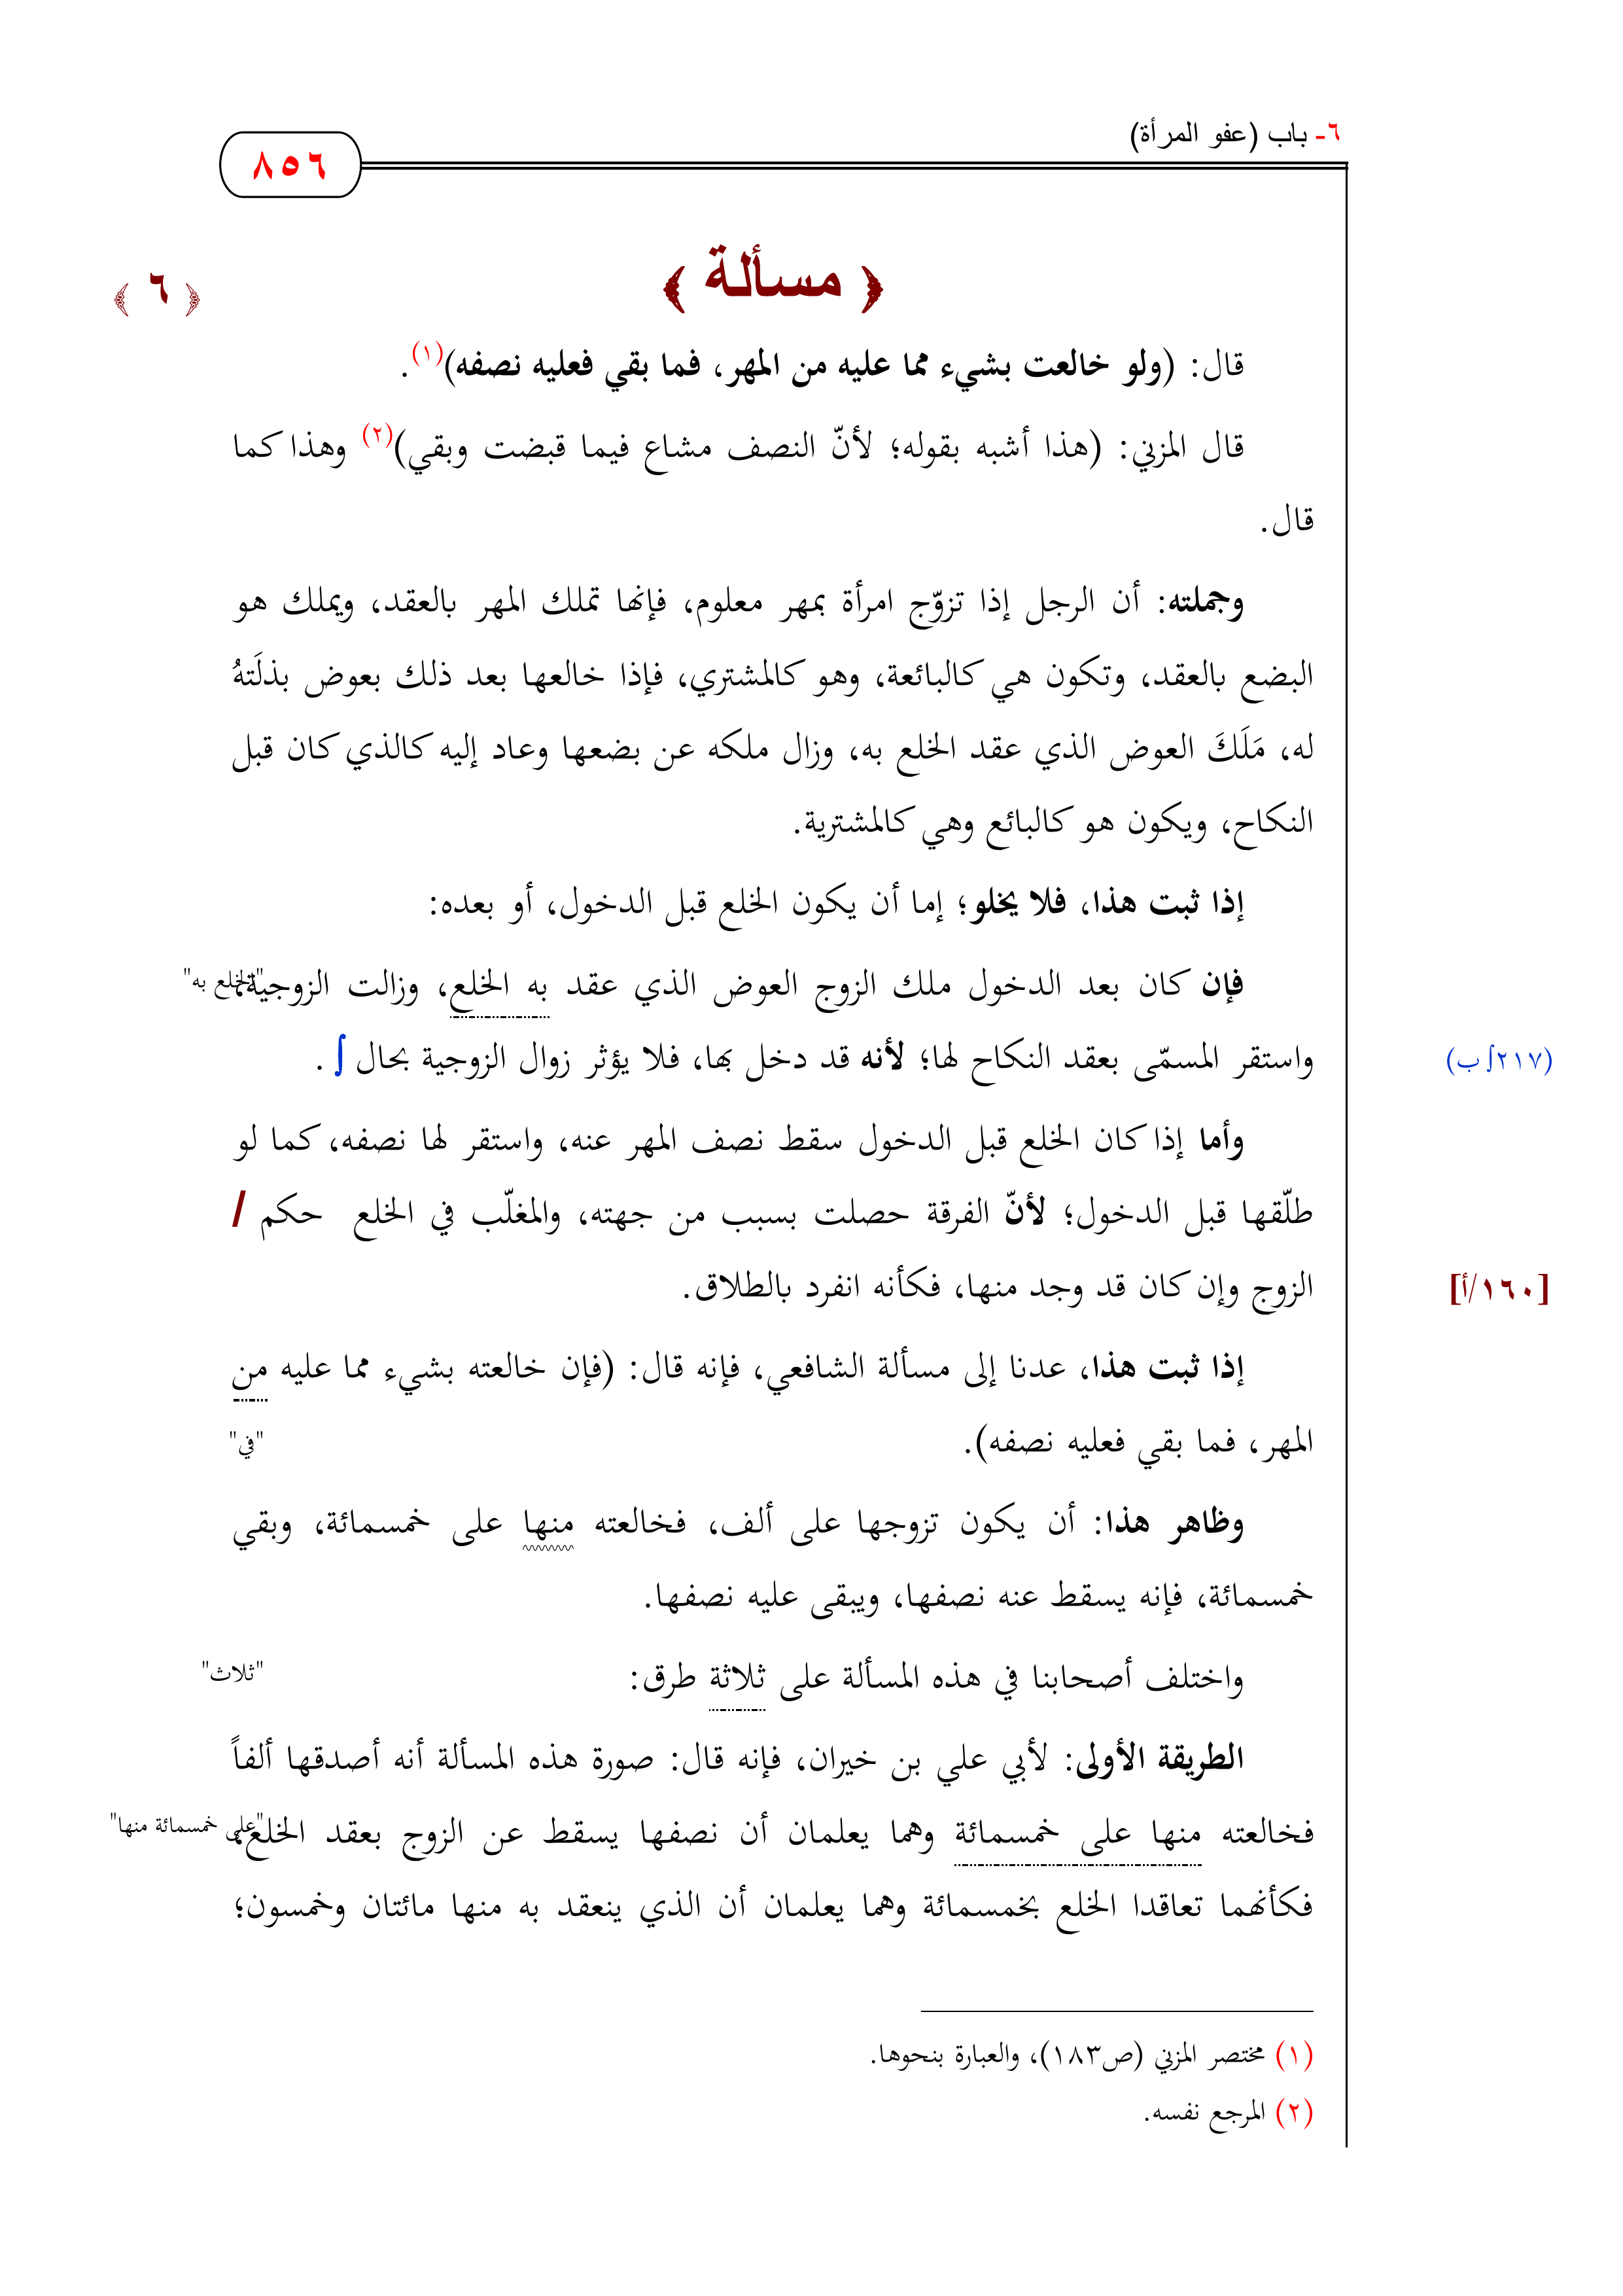 ٦- باب (عفو المرأة)
٨٥٦
﴿ مسألة ﴾
﴿ ٦ ﴾
قال: (ولو خالعت بشيء مما عليه من المهر، فما بقي فعليه نصفه)(١).
قال المزني: (هذا أشبه بقوله؛ لأنّ النصف مشاع فيما قبضت وبقي)(٢) وهذا كما
قال.
وجملته: أن الرجل إذا تزوّج امرأة بمهر معلوم، فإنها تملك المهر بالعقد، ويملك هو
البضع بالعقد، وتكون هي كالبائعة، وهو كالمشتري، فإذا خالعها بعد ذلك بعوض بذلَتهُ
له، مَلَكَ العوض الذي عقد الخلع به، وزال ملكه عن بضعها وعاد إليه كالذي كان قبل
النكاح، ويكون هو كالبائع وهي كالمشترية.
إذا ثبت هذا، فلا يخلو؛ إما أن يكون الخلع قبل الدخول، أو بعده:
فإن كان بعد الدخول ملك الزوج العوض الذي عقد به الخلع، وزالت الزوجية،
"الخلع به"
واستقر المسمّى بعقد النكاح لها؛ لأنه قد دخل بها، فلا يؤثر زوال الزوجية بحال ∫ .
(٢١٧∫ ب)
وأما إذا كان الخلع قبل الدخول سقط نصف المهر عنه، واستقر لها نصفه، كما لو
طلّقها قبل الدخول؛ لأنّ الفرقة حصلت بسبب من جهته، والمغلّب في الخلع حكم /
الزوج وإن كان قد وجد منها، فكأنه انفرد بالطلاق.
[١٦٠/أ]
إذا ثبت هذا، عدنا إلى مسألة الشافعي، فإنه قال: (فإن خالعته بشيء مما عليه من
المهر، فما بقي فعليه نصفه).
"في"
وظاهر هذا: أن يكون تزوجها على ألف، فخالعته منها على خمسمائة، وبقي
خمسمائة، فإنه يسقط عنه نصفها، ويبقى عليه نصفها.
واختلف أصحابنا في هذه المسألة على ثلاثة طرق:
"ثلاث"
الطريقة الأولى: لأبي علي بن خيران، فإنه قال: صورة هذه المسألة أنه أصدقها ألفاً
فخالعته منها على خمسمائة وهما يعلمان أن نصفها يسقط عن الزوج بعقد الخلع،
"على خمسمائة منها"
فكأنهما تعاقدا الخلع بخمسمائة وهما يعلمان أن الذي ينعقد به منها مائتان وخمسون؛
(١) مختصر المزني (ص١٨٣)، والعبارة بنحوها.
(٢) المرجع نفسه.